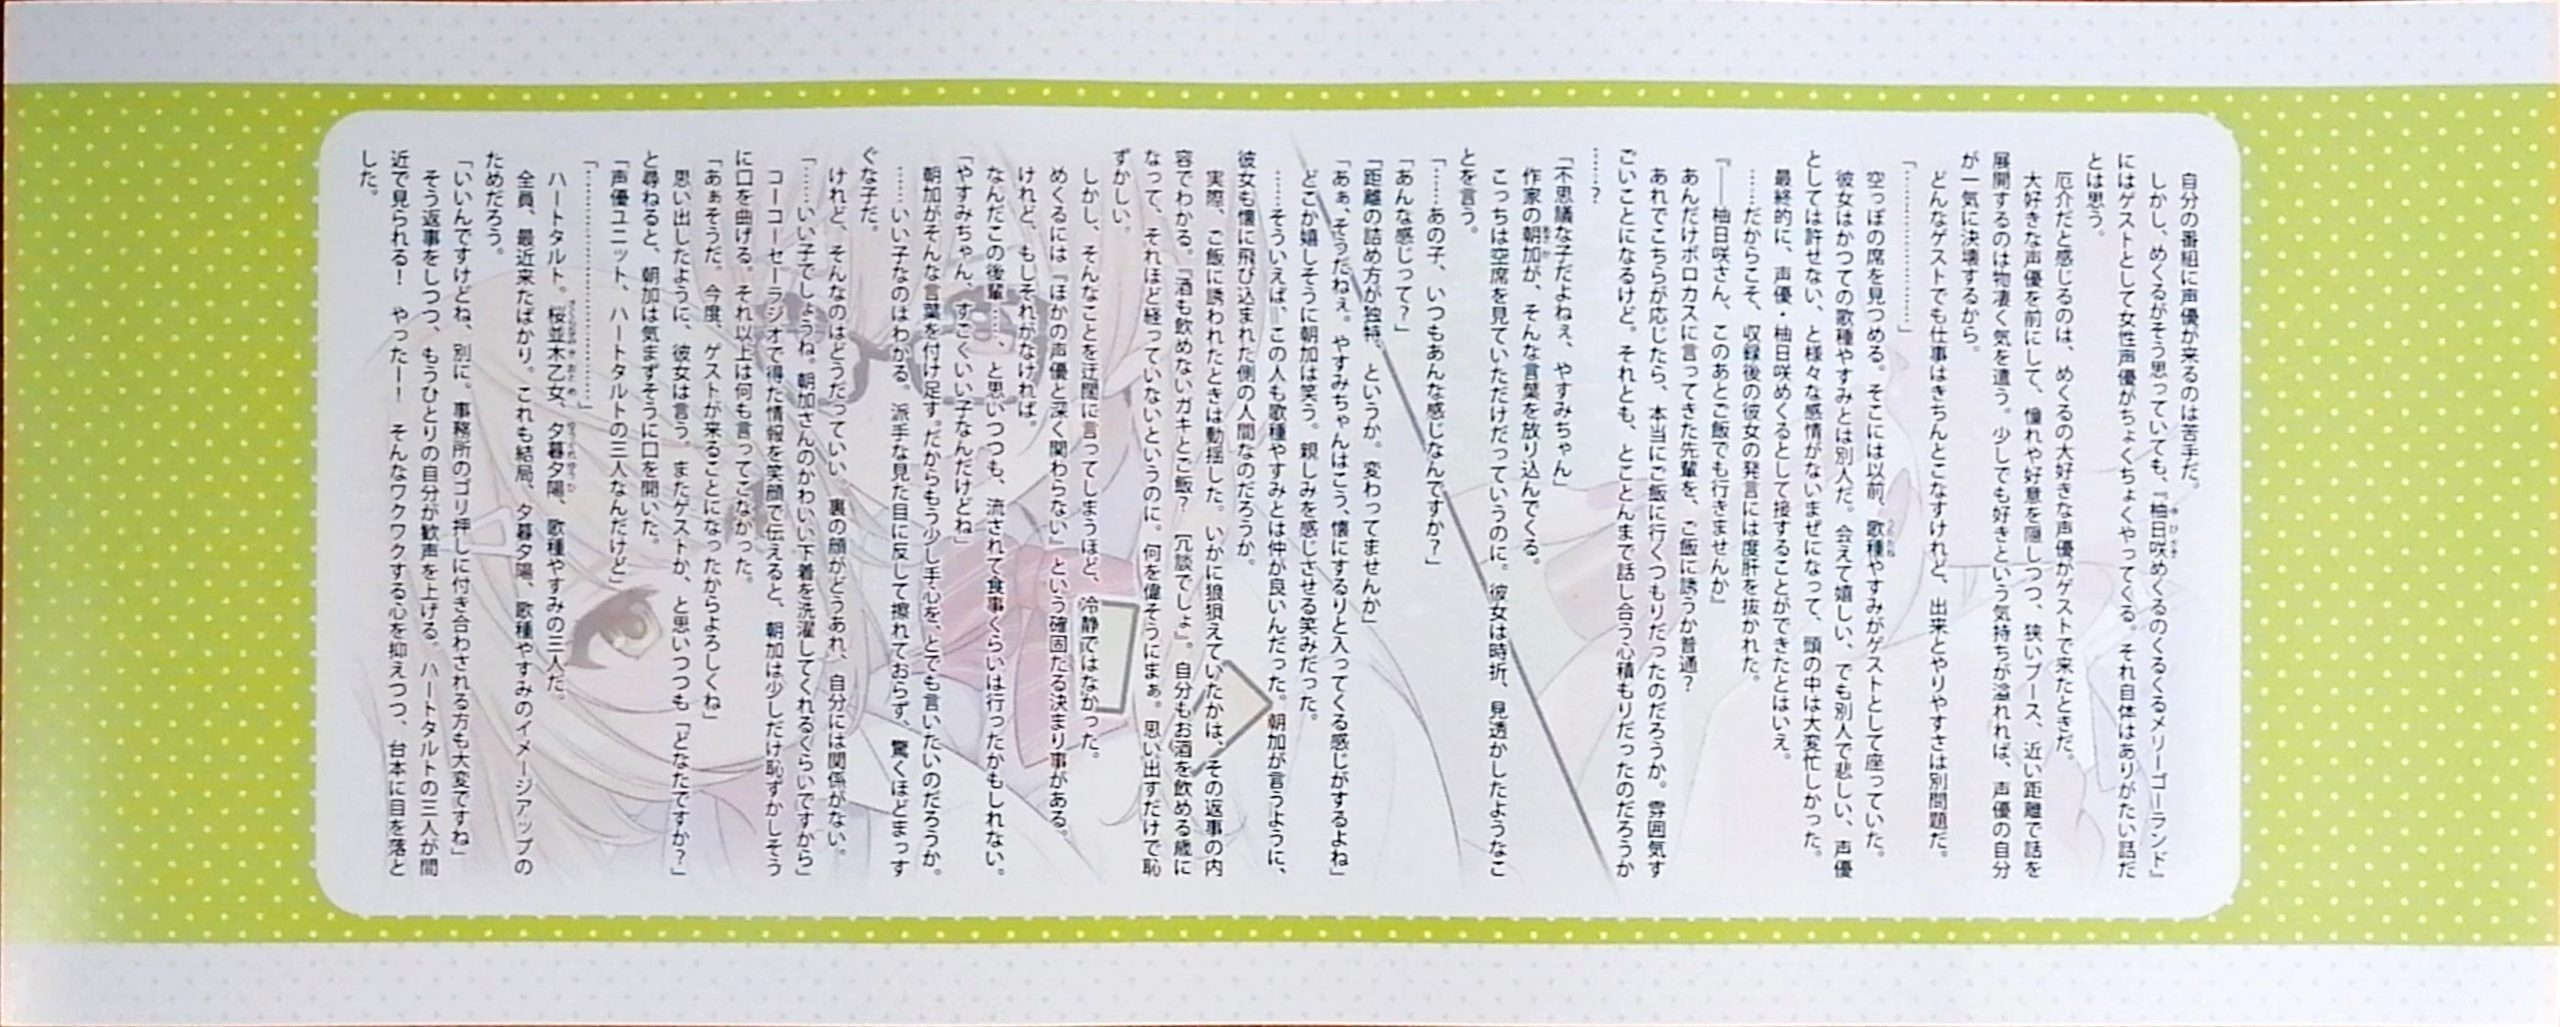 自分の番組に声優が来るのは苦手だ。
しかし、めくるがそう思っていても、『柚日咲めくるのくるくるメリーゴーランド』
にはゲストとして女性声優がちょくちょくやってくる。それ自体はありがたい話だ
とは思う。
厄介だと感じるのは、めくるの大好きな声優がゲストで来たときだ。
大好きな声優を前にして、憧れや好意を隠しつつ、狭いブース、近い距離で話を
展開するのは物凄く気を遣う。少しでも好きという気持ちが溢れれば、声優の自分
が一気に決壊するから。
どんなゲストでも仕事はきちんとこなすけれど、出来とやりやすさは別問題だ。
「……………………」
空っぽの席を見つめる。そこには以前、歌種やすみがゲストとして座っていた。
彼女はかつての歌種やすみとは別人だ。会えて嬉しい、でも別人で悲しい、声優
としては許せない、と様々な感情がないまぜになって、頭の中は大変忙しかった。
最終的に、声優・柚日咲めくるとして接することができたとはいえ。
……だからこそ、収録後の彼女の発言には度肝を抜かれた。
『――柚日咲さん、このあとご飯でも行きませんか』
あんだけボロカスに言ってきた先輩を、ご飯に誘うか普通？
あれでこちらが応じたら、本当にご飯に行くつもりだったのだろうか。雰囲気す
ごいことになるけど。それとも、とことんまで話し合う心積もりだったのだろうか
……？
「不思議な子だよねぇ、やすみちゃん」
作家の朝加が、そんな言葉を放り込んでくる。
こっちは空席を見ていただけだっていうのに。彼女は時折、見透かしたようなこ
とを言う。
「……あの子、いつもあんな感じなんですか？」
「あんな感じって？」
「距離の詰め方が独特、というか。変わってませんか」
「あぁ、そうだねぇ。やすみちゃんはこう、懐にするりと入ってくる感じがするよね」
どこか嬉しそうに朝加は笑う。親しみを感じさせる笑みだった。
……そういえば、この人も歌種やすみとは仲が良いんだった。朝加が言うように、
彼女も懐に飛び込まれた側の人間なのだろうか。
実際、ご飯に誘われたときは動揺した。いかに狼狽えていたかは、その返事の内
容でわかる。『酒も飲めないガキとご飯？　冗談でしょ』。自分もお酒を飲める歳に
なって、それほど経っていないというのに。何を偉そうにまぁ。思い出すだけで恥
ずかしい。
しかし、そんなことを迂闊に言ってしまうほど、冷静ではなかった。
めくるには『ほかの声優と深く関わらない』という確固たる決まり事がある。
けれど、もしそれがなければ。
なんだこの後輩……、と思いつつも、流されて食事くらいは行ったかもしれない。
「やすみちゃん、すごくいい子なんだけどね」
朝加がそんな言葉を付け足す。だからもう少し手心を、とでも言いたいのだろうか。
……いい子なのはわかる。派手な見た目に反して擦れておらず、驚くほどまっす
ぐな子だ。
けれど、そんなのはどうだっていい。裏の顔がどうあれ、自分には関係がない。
「……いい子でしょうね。朝加さんのかわいい下着を洗濯してくれるくらいですから」
コーコーセーラジオで得た情報を笑顔で伝えると、朝加は少しだけ恥ずかしそう
に口を曲げる。それ以上は何も言ってこなかった。
「あぁそうだ。今度、ゲストが来ることになったからよろしくね」
思い出したように、彼女は言う。またゲストか、と思いつつも「どなたですか？」
と尋ねると、朝加は気まずそうに口を開いた。
「声優ユニット、ハートタルトの三人なんだけど」
「……………………………」
ハートタルト。桜並木乙女、夕暮夕陽、歌種やすみの三人だ。
全員、最近来たばかり。これも結局、夕暮夕陽、歌種やすみのイメージアップの
ためだろう。
「いいんですけどね、別に。事務所のゴリ押しに付き合わされる方も大変ですね」
そう返事をしつつ、もうひとりの自分が歓声を上げる。ハートタルトの三人が間
近で見られる！　やったー！　そんなワクワクする心を抑えつつ、台本に目を落と
した。